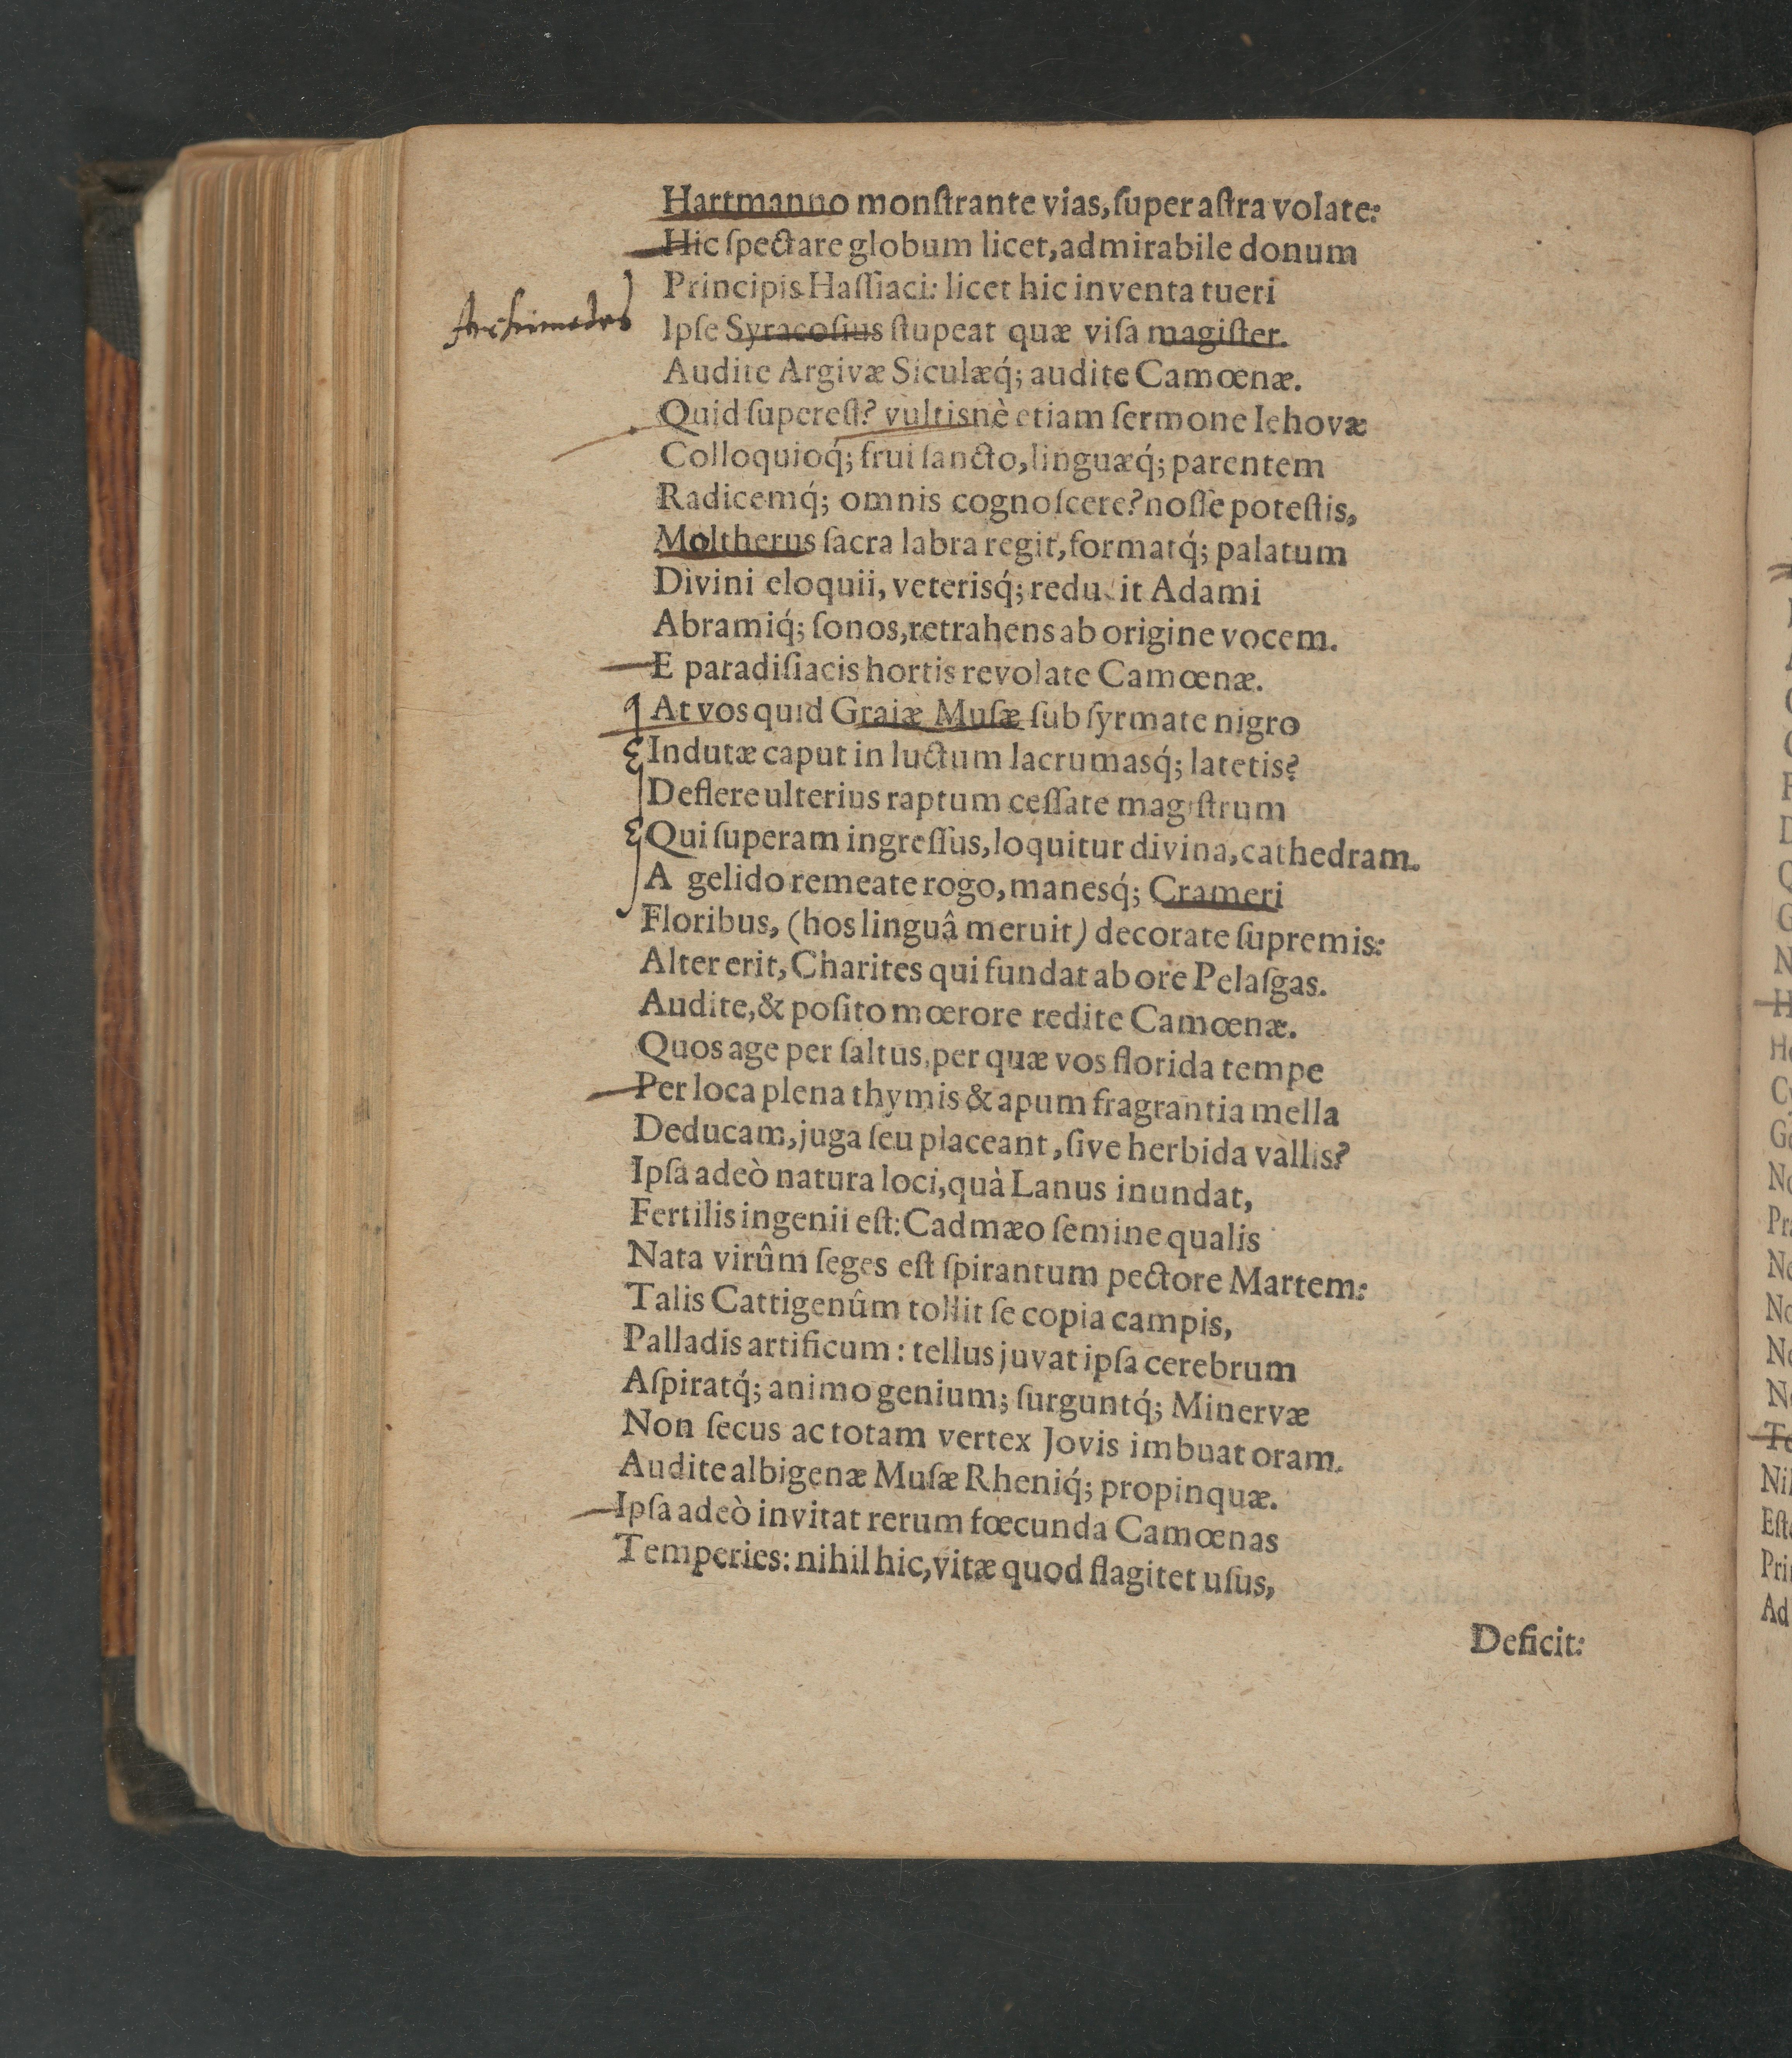 Hartmanno monſtrante vias, ſuper aſtra volate:
Hic ſpectare globum licet, admirabile donum
Principis Haſſiaci: licet hic inventa tueri
Archimedes
Ipſe Syracoſius ſtupeat quæ viſa magiſter.
Audite Argivæ Siculæq́; audite Camœnæ.
Quid ſupereſt? vultisnè etiam ſermone Iehovæ
Colloquioq́; frui ſancto, linguæq́; parentem
Radicemq́; omnis cognoſcere? noſſe poteſtis,
Moltherus ſacra labra regit, formatq́; palatum
Divini eloquii, veterisq́; redu it Adami
Abramiq́; ſonos, retrahens ab origine vocem.
E paradiſiacis hortis revolate Camœnæ.
At vos quid Graiæ Muſæ ſub ſyrmate nigro
Indutæ caput in luctum lacrumasq́; latetis?
Deflere ulterius raptum ceſſate magiſtrum
Qui ſuperam ingreſſus, loquitur divina, cathedram.
A gelido remeate rogo, manesq́; Crameri
Floribus, (hos linguâ meruit) decorate ſupremis:
Alter erit, Charites qui fundat ab ore Pelaſgas.
Audite, & poſito mœrore redite Camœnæ.
Quos age per ſaltus, per quæ vos florida tempe
Per loca plena thymis & apum fragrantia mella
Deducam, juga ſeu placeant, ſive herbida vallis?
Ipſa adeò natura loci, quà Lanus inundat,
Fertilis ingenii eſt: Cadmæo ſemine qualis
Nata virûm ſeges eſt ſpirantum pectore Martem:
Talis Cattigenûm tollit ſe copia campis,
Palladis artificum: tellus juvat ipſa cerebrum
Aſpiratq́; animo genium; ſurguntq́; Minervæ
Non ſecus ac totam vertex Jovis imbuat oram.
Audite albigenæ Muſæ Rheniq́; propinquæ.
Ipſa adeò invitat rerum fœcunda Camœnas
Temperies: nihil hic, vitæ quod flagitet uſus,
Deficit: